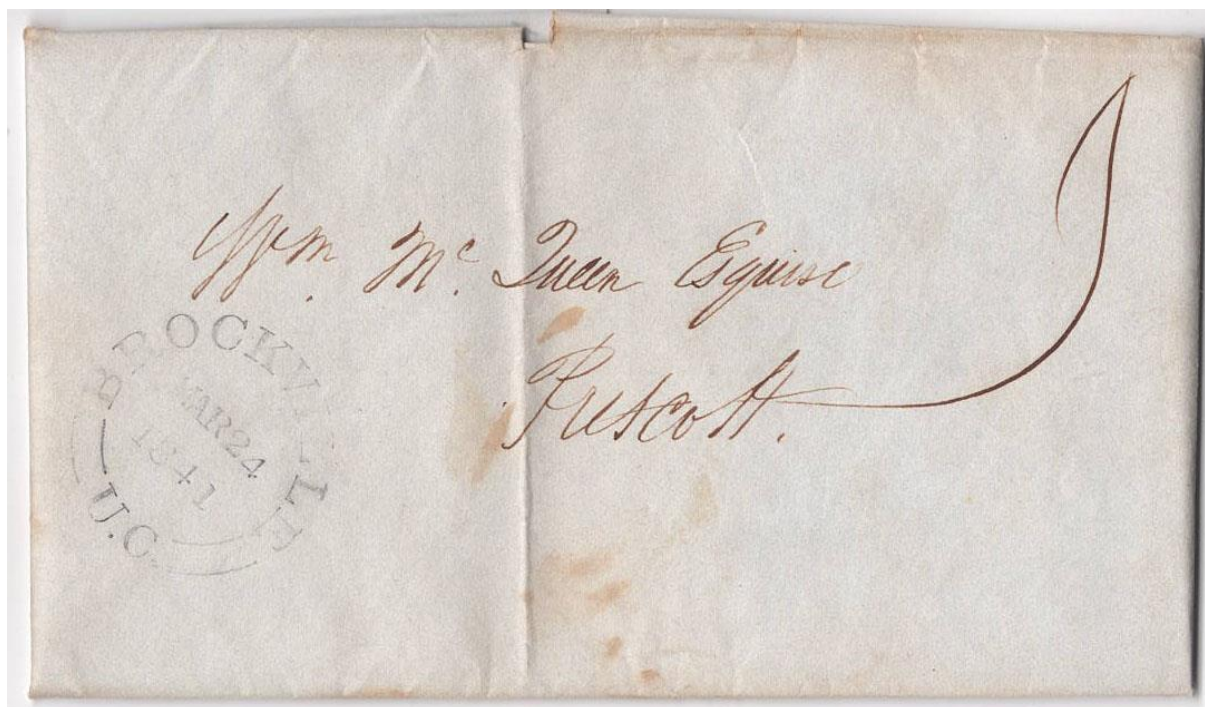 Wm. Mc. Queen Esquire
Prescott.
BROCKVILLE
MAR 24
1841
U.C.